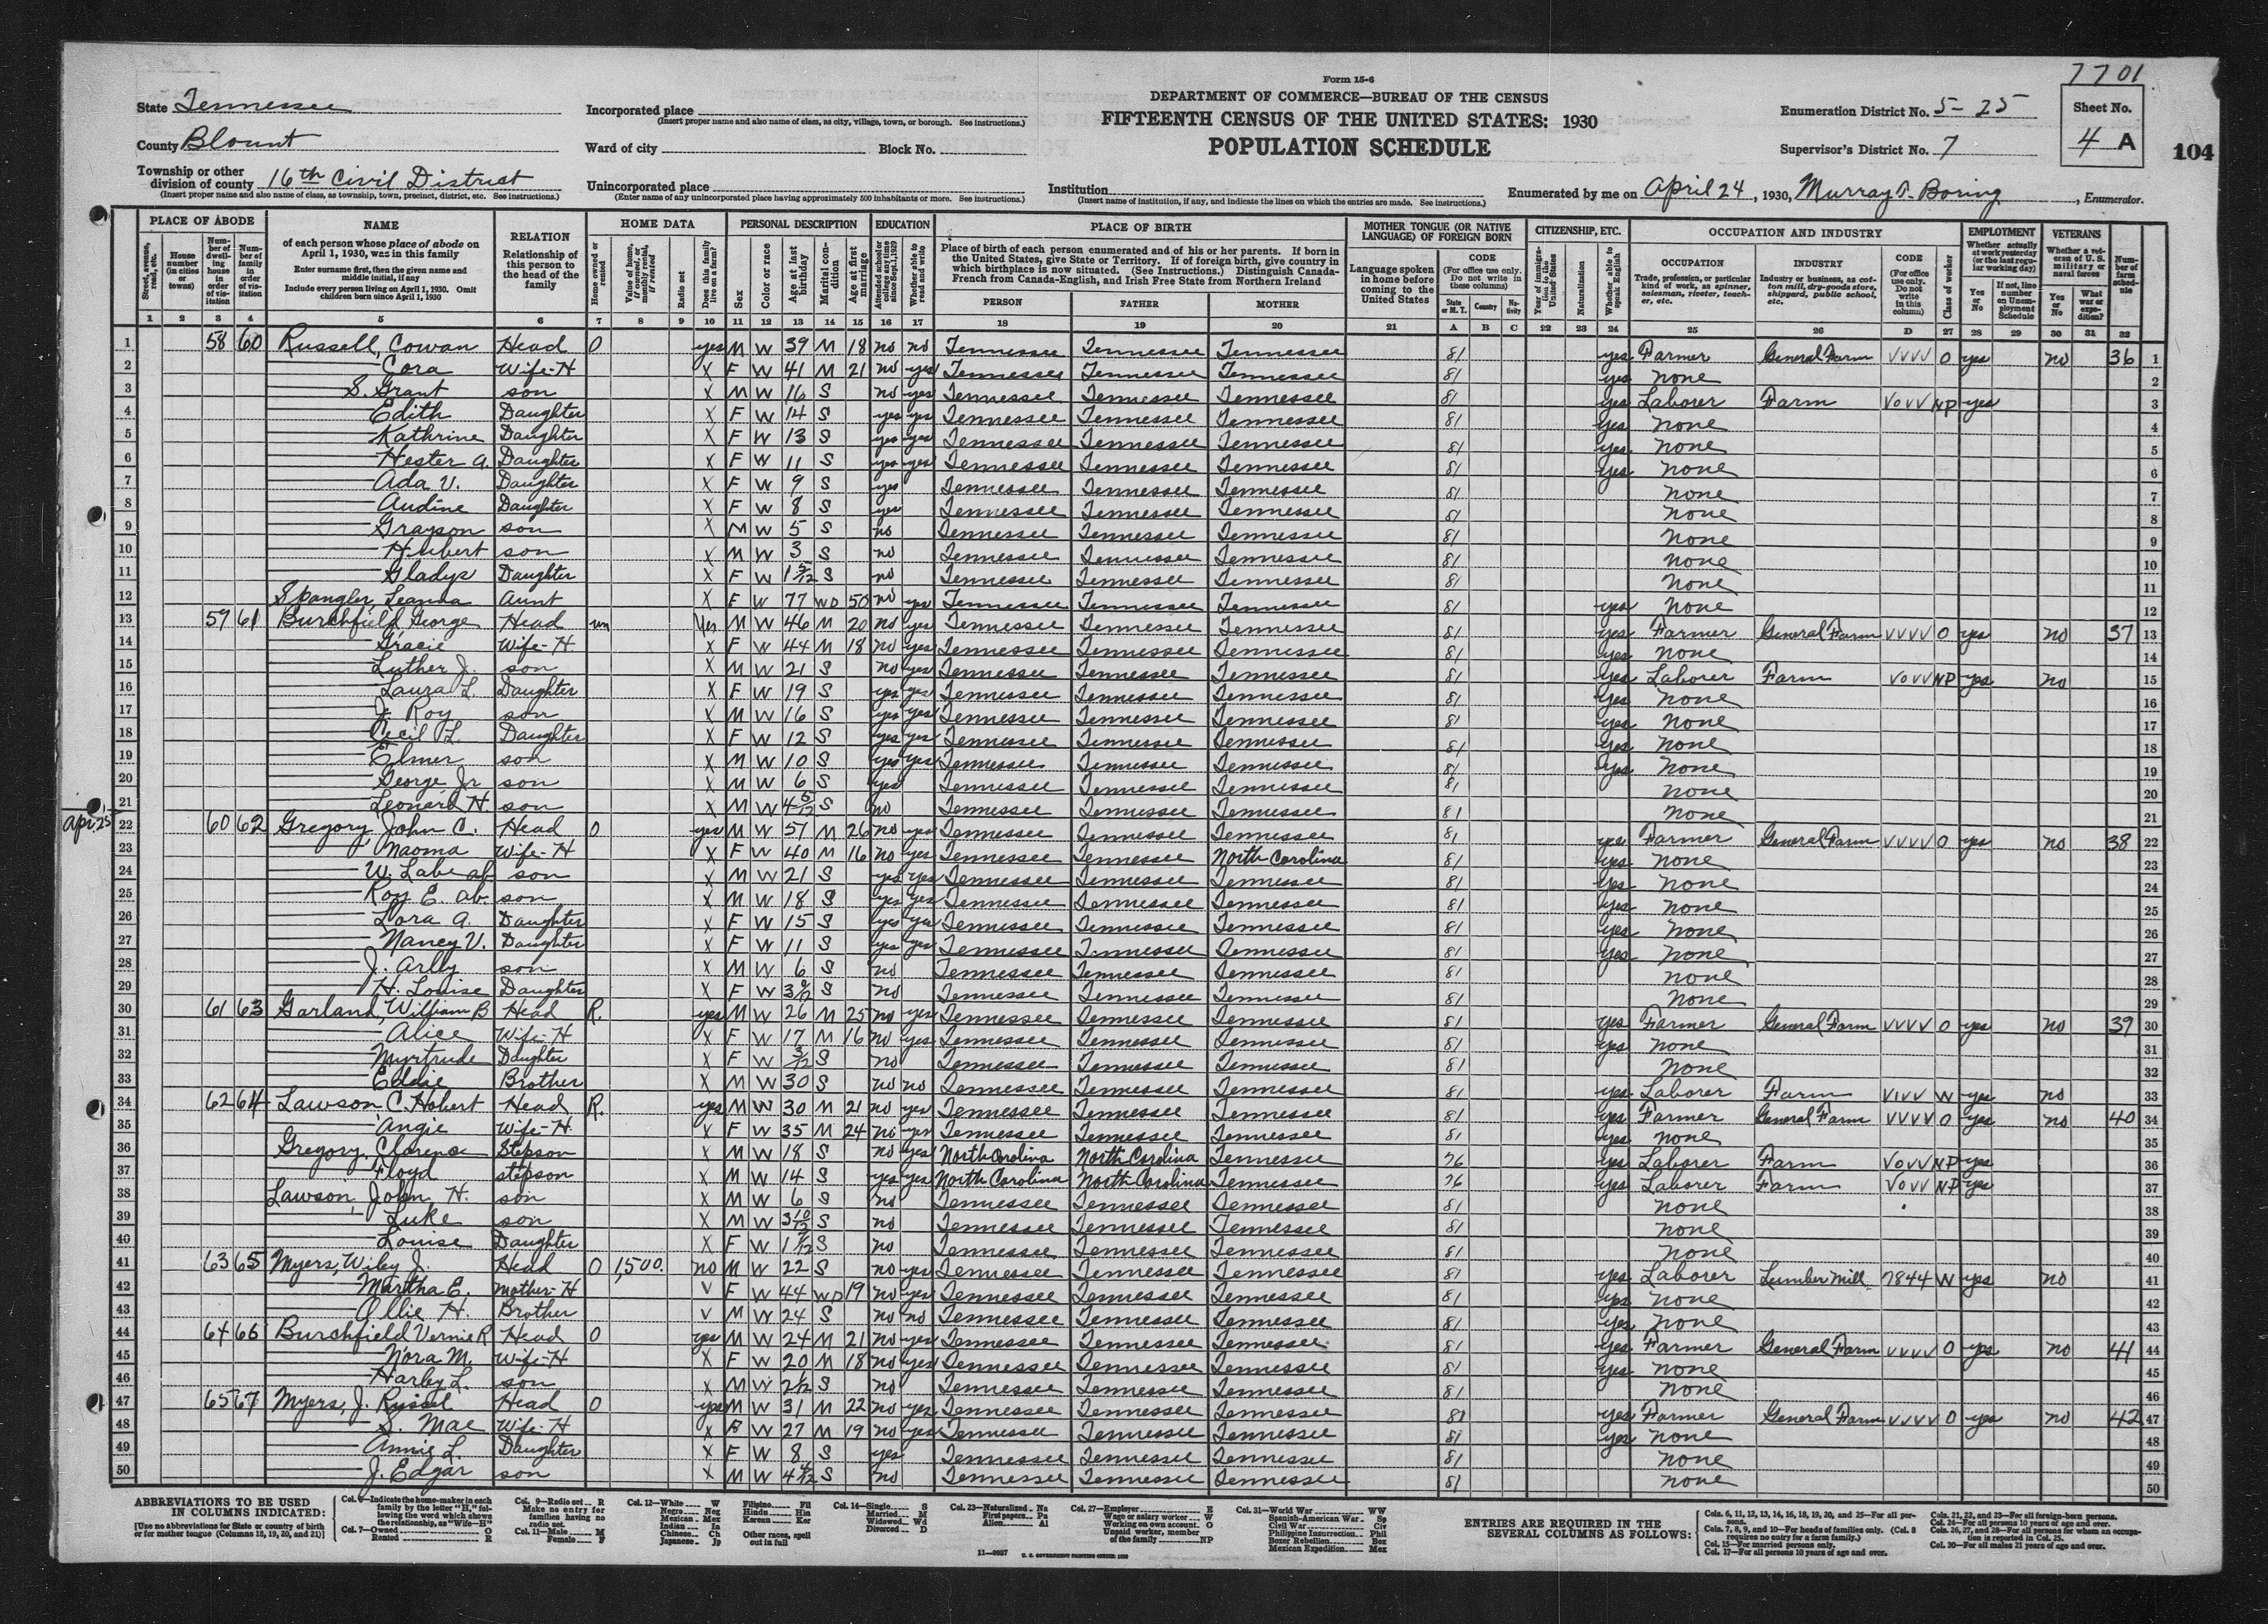 7701
Form 15-6
State Tennessee
Incorporated place
(Insert proper name and also name of class, as city, village, town, or borough. See instructions.)
DEPARTMENT OF COMMERCE—BUREAU OF THE CENSUS
Enumeration District No. 5-25
Sheet No.
County Blount
Ward of city Block No.
FIFTEENTH CENSUS OF THE UNITED STATES: 1930
POPULATION SCHEDULE
Supervisor's District No. 7
4 A
104
Township or other division of county 16th Civil District
(Insert proper name and also name of class, as township, town, precinct, district, etc. See instructions.)
Unincorporated place
(Enter name of any unincorporated place having approximately 500 inhabitants or more. See instructions.)
Institution
(Insert name of institution, if any, and indicate the lines on which the entries are made. See instructions.)
Enumerated by me on April 24, 1930, Murray T. Boring, Enumerator.
PLACE OF ABODE NAME RELATION HOME DATA PERSONAL DESCRIPTION EDUCATION PLACE OF BIRTH MOTHER TONGUE (OR NATIVE LANGUAGE) OF FOREIGN BORN CITIZENSHIP, ETC. OCCUPATION AND INDUSTRY EMPLOYMENT VETERANS
1 58 60 Russell, Cowan Head O yes M W 39 M 18 no no Tennessee Tennessee Tennessee 81 yes Farmer General Farm VVVV O yes no 36 1
2 Cora Wife-H X F W 41 M 21 no yes Tennessee Tennessee Tennessee 81 yes none 2
3 S. Grant son X M W 16 S no yes Tennessee Tennessee Tennessee 81 yes Laborer Farm VOVV NP yes 3
4 Edith Daughter X F W 14 S yes yes Tennessee Tennessee Tennessee 81 yes none 4
5 Kathrine Daughter X F W 13 S yes yes Tennessee Tennessee Tennessee 81 yes none 5
6 Hester A. Daughter X F W 11 S yes yes Tennessee Tennessee Tennessee 81 yes none 6
7 Ada V. Daughter X F W 9 S yes Tennessee Tennessee Tennessee 81 none 7
8 Audine Daughter X F W 8 S yes Tennessee Tennessee Tennessee 81 none 8
9 Grayson son X M W 5 S no Tennessee Tennessee Tennessee 81 none 9
10 Hubert son X M W 3 S no Tennessee Tennessee Tennessee 81 none 10
11 Gladys Daughter X F W 1 5/12 S no Tennessee Tennessee Tennessee 81 none 11
12 Spangler, Leanna Aunt X F W 77 WD 50 no yes Tennessee Tennessee Tennessee 81 yes none 12
13 59 61 Burchfield George Head yes M W 46 M 20 no yes Tennessee Tennessee Tennessee 81 yes Farmer General Farm VVVV O yes no 37 13
14 Gracie Wife-H X F W 44 M 18 no yes Tennessee Tennessee Tennessee 81 yes none 14
15 Luther J. son X M W 21 S no yes Tennessee Tennessee Tennessee 81 yes Laborer Farm VOVV NP yes no 15
16 Laura L. Daughter X F W 19 S yes yes Tennessee Tennessee Tennessee 81 yes none 16
17 J. Roy son X M W 16 S yes yes Tennessee Tennessee Tennessee 81 yes none 17
18 Cecil L. Daughter X F W 12 S yes yes Tennessee Tennessee Tennessee 81 yes none 18
19 Elmer son X M W 10 S yes yes Tennessee Tennessee Tennessee 81 yes none 19
20 George Jr son X M W 6 S yes Tennessee Tennessee Tennessee 81 none 20
21 Leonard H. son X M W 4 5/12 S no Tennessee Tennessee Tennessee 81 none 21
Apr. 25 22 60 62 Gregory, John C. Head O yes M W 57 M 26 no yes Tennessee Tennessee Tennessee 81 yes Farmer General Farm VVVV O yes no 38 22
23 Naoma Wife-H X F W 40 M 16 no yes Tennessee Tennessee North Carolina 81 yes none 23
24 W. Labe ab son X M W 21 S yes yes Tennessee Tennessee Tennessee 81 yes none 24
25 Roy E. ab son X M W 18 S yes yes Tennessee Tennessee Tennessee 81 yes none 25
26 Lora A. Daughter X F W 15 S yes yes Tennessee Tennessee Tennessee 81 yes none 26
27 Nancy V. Daughter X F W 11 S yes yes Tennessee Tennessee Tennessee 81 yes none 27
28 J. Arlly son X M W 6 S no Tennessee Tennessee Tennessee 81 none 28
29 H. Louise Daughter X F W S no Tennessee Tennessee Tennessee 81 none 29
30 61 63 Garland, William B Head R. yes M W 26 M 25 no yes Tennessee Tennessee Tennessee 81 yes Farmer General Farm VVVV O yes no 39 30
31 Alice Wife-H X F W 17 M 16 no yes Tennessee Tennessee Tennessee 81 yes none 31
32 Myrtrude Daughter X F W 3/12 S no Tennessee Tennessee Tennessee 81 none 32
33 Eddie Brother X M W 30 S no no Tennessee Tennessee Tennessee 81 yes Laborer Farm VIVV W yes no 33
34 62 64 Lawson, C. Hobert Head R. yes M W 30 M 21 no yes Tennessee Tennessee Tennessee 81 yes Farmer General Farm VVVV O yes no 40 34
35 Angie Wife-H X F W 35 M 24 no yes Tennessee Tennessee Tennessee 81 yes none 35
36 Gregory, Clarence Stepson X M W 18 S no yes North Carolina North Carolina Tennessee 76 yes Laborer Farm VOVV NP yes 36
37 Floyd stepson X M W 14 S yes yes North Carolina North Carolina Tennessee 76 yes Laborer Farm VOVV NP yes 37
38 Lawson, John H. son X M W 6 S no Tennessee Tennessee Tennessee 81 none 38
39 Luke son X M W 3 10/12 S no Tennessee Tennessee Tennessee 81 none 39
40 Louise Daughter X F W S no Tennessee Tennessee Tennessee 81 none 40
41 63 65 Myers, Wiley J. Head O 1,500. no M W 22 S no yes Tennessee Tennessee Tennessee 81 yes Laborer Lumber Mill 7844 W yes no 41
42 Martha E. mother-H V F W 44 WD 19 no yes Tennessee Tennessee Tennessee 81 yes none 42
43 Ollie H. Brother V M W 24 S no no Tennessee Tennessee Tennessee 81 yes none 43
44 64 66 Burchfield Vernie R Head O yes M W 24 M 21 no yes Tennessee Tennessee Tennessee 81 yes Farmer General Farm VVVV O yes no 41 44
45 Nora M. Wife-H X F W 20 M 18 no yes Tennessee Tennessee Tennessee 81 yes none 45
46 Harley L. son X M W 2 1/12 S no Tennessee Tennessee Tennessee 81 none 46
47 65 67 Myers, J. Russel Head O yes M W 31 M 22 no yes Tennessee Tennessee Tennessee 81 yes Farmer General Farm VVVV O yes no 42 47
48 S. Mae Wife-H X F W 27 M 19 no yes Tennessee Tennessee Tennessee 81 yes none 48
49 Annie L. Daughter X F W 8 S yes Tennessee Tennessee Tennessee 81 none 49
50 J. Edgar son X M W 4 4/12 S no Tennessee Tennessee Tennessee 81 none 50
ABBREVIATIONS TO BE USED IN COLUMNS INDICATED:
[Use no abbreviations for State or country of birth or for mother tongue (Columns 18, 19, 20, and 21)]
ENTRIES ARE REQUIRED IN THE SEVERAL COLUMNS AS FOLLOWS:
11—6927 U. S. GOVERNMENT PRINTING OFFICE: 1930